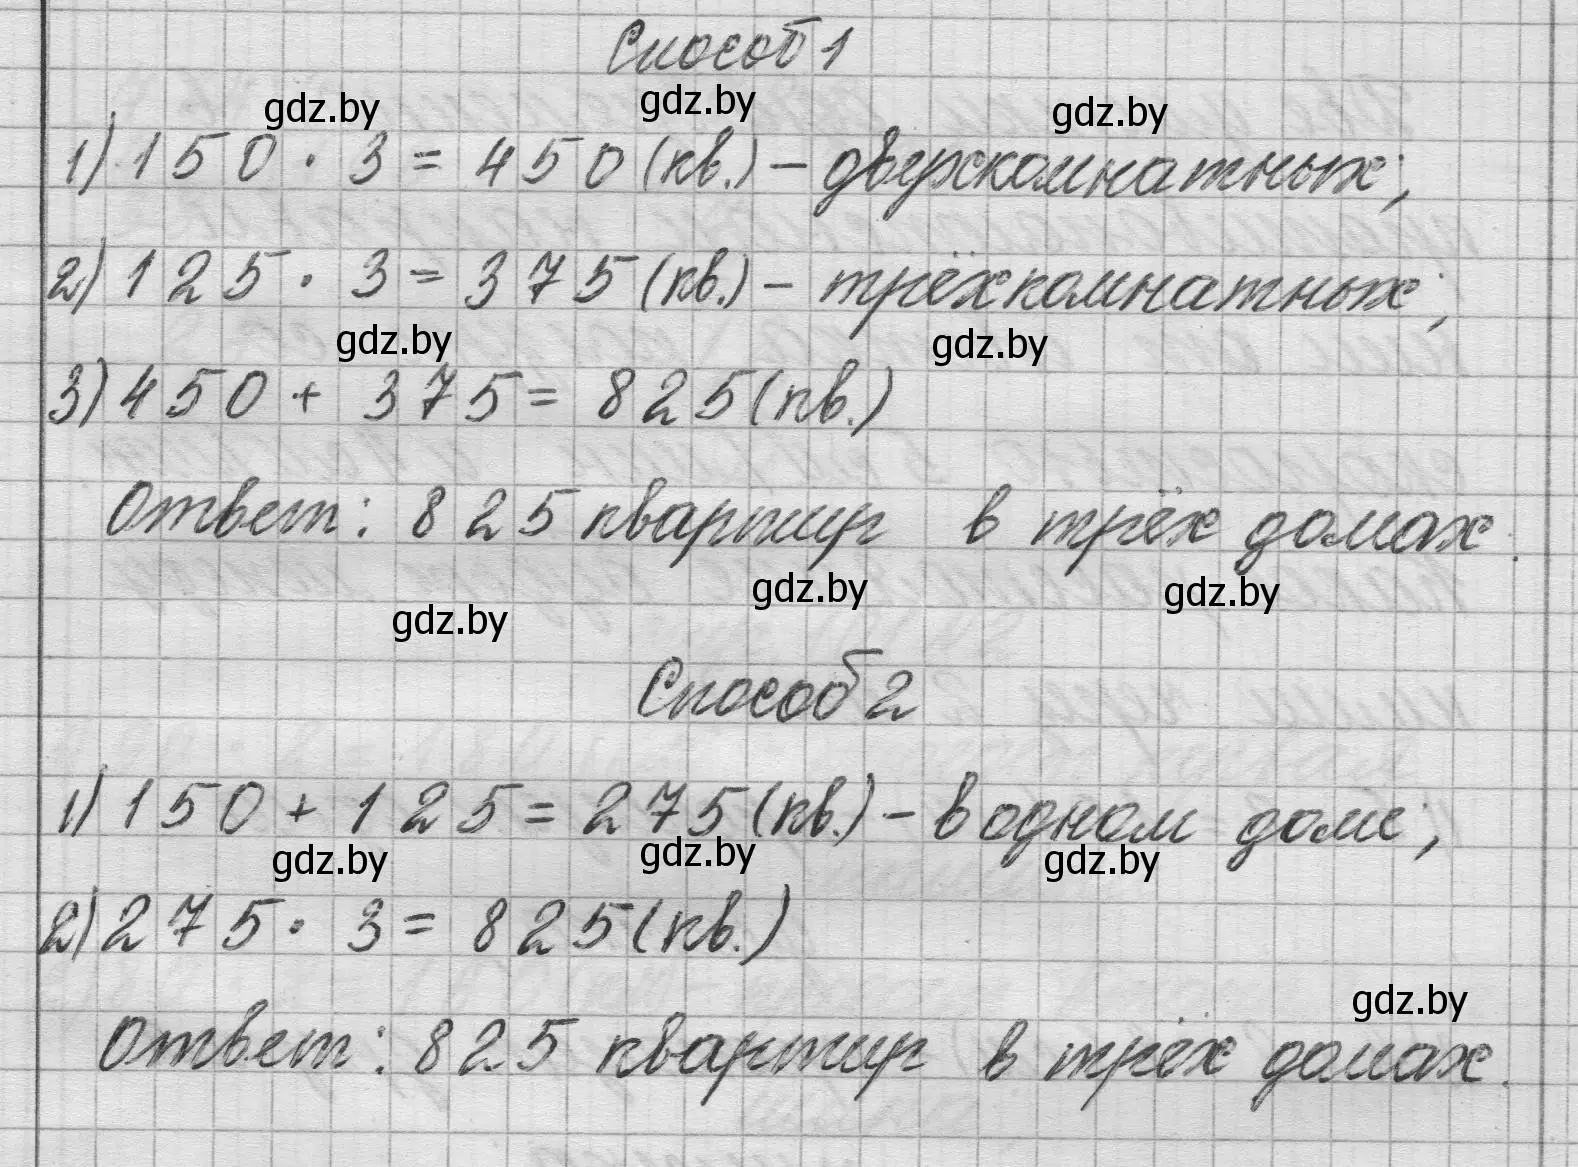 Способ 1
gdz.by gdz.by gdz.by
1) 150 · 3 = 450 (кв.) – двухкомнатных;
2) 125 · 3 = 375 (кв.) – трёхкомнатных;
gdz.by gdz.by
3) 450 + 375 = 825 (кв.)
Ответ: 825 квартир в трёх домах.
gdz.by gdz.by gdz.by
Способ 2
1) 150 + 125 = 275 (кв.) – в одном доме;
gdz.by gdz.by gdz.by
2) 275 · 3 = 825 (кв.)
gdz.by
Ответ: 825 квартир в трёх домах.